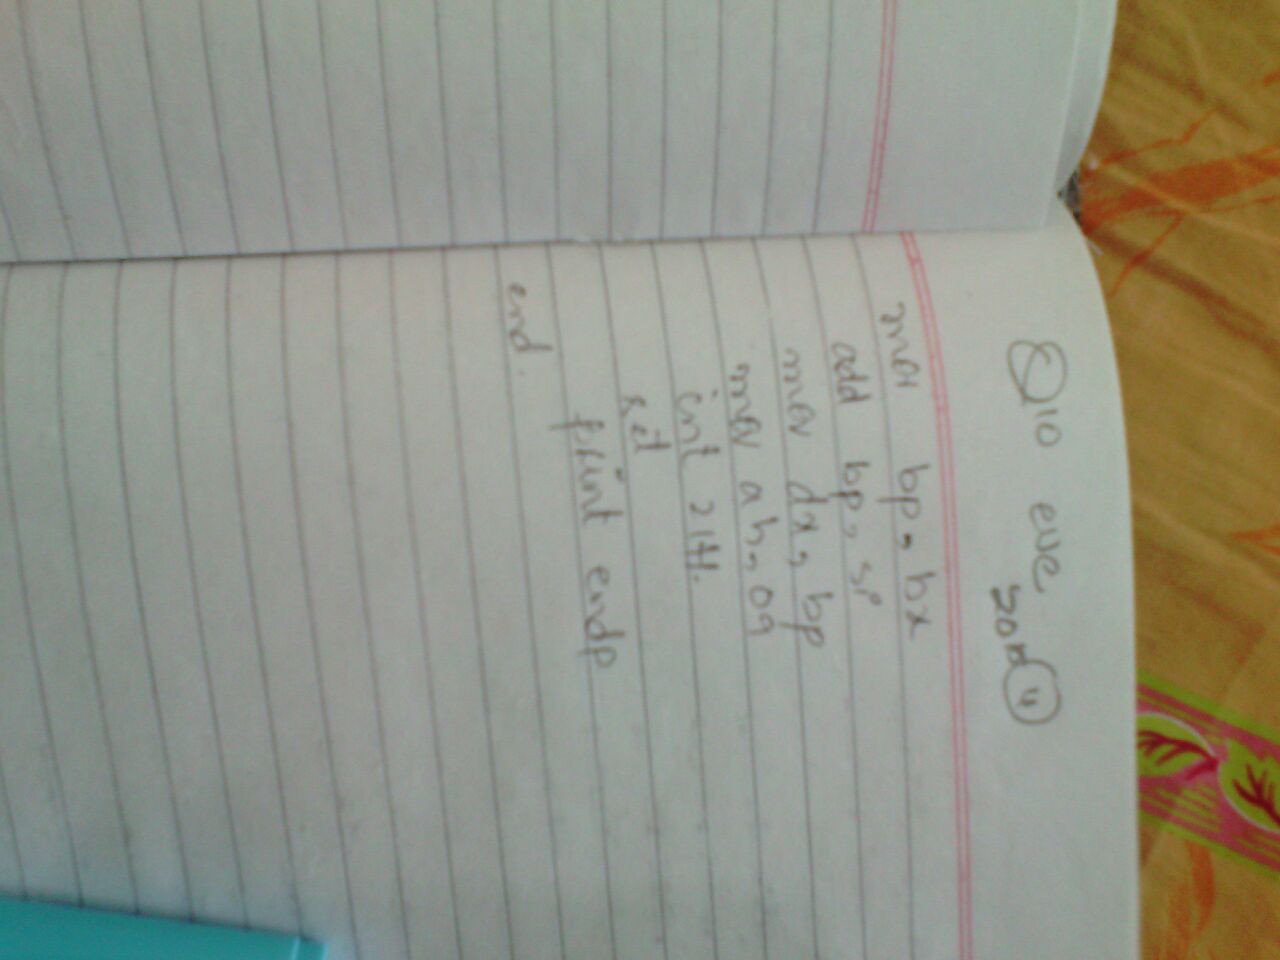 Q10 eve
mov bp, bx
add bp, si
mov dx, bp
mov ah, 09
int 21H.
ret
print endp
end.